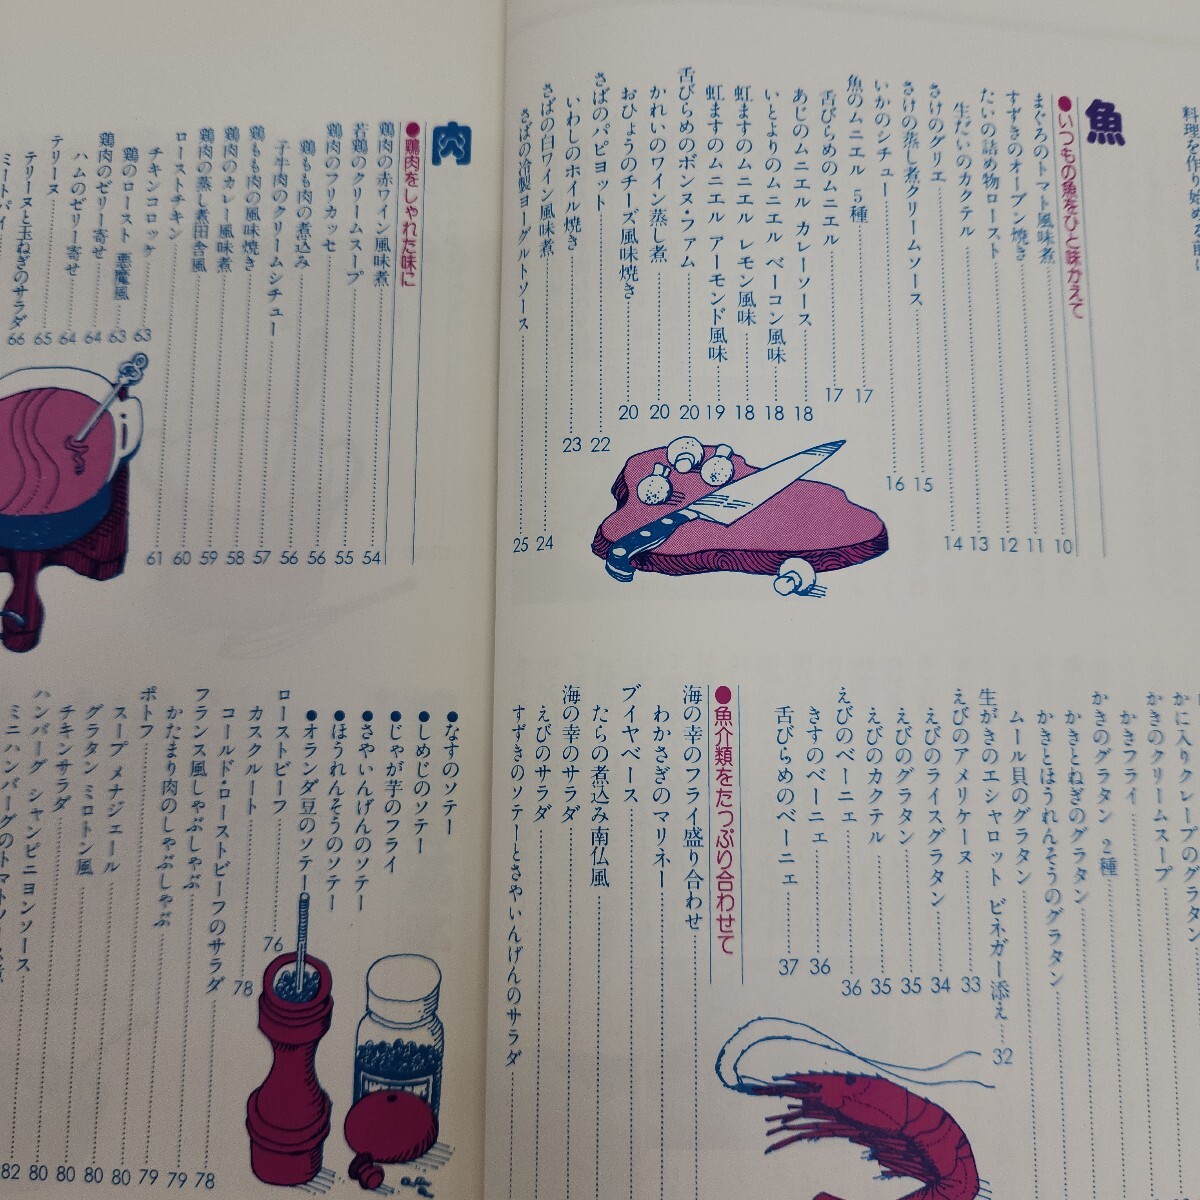 料理を作り始める前に
魚
●いつもの魚をひと味かえて
まぐろのトマト風味煮 10
すずきのオーブン焼き 11
たいの詰め物ロースト 12
生だいのカクテル 13
さけのグリエ 14
さけの蒸し煮クリームソース 15
いかのシチュー 16
魚のムニエル 5種 17
舌びらめのムニエル 17
あじのムニエル カレーソース 18
いとよりのムニエル ベーコン風味 18
虹ますのムニエル レモン風味 18
虹ますのムニエル アーモンド風味 19
舌びらめのボンヌ・ファム 20
かれいのワイン蒸し煮 20
おひょうのチーズ風味焼き 20
さばのパピヨット 22
いわしのホイル焼き 23
さばの白ワイン風味煮 24
さばの冷製ヨーグルトソース 25
かに入りクレープのグラタン
かきのクリームスープ
かきフライ
かきのグラタン 2種
かきとねぎのグラタン
かきとほうれんそうのグラタン
ムール貝のグラタン
生がきのエシャロット ビネガー添え 32
えびのアメリケーヌ 33
えびのライスグラタン 34
えびのグラタン 35
えびのカクテル 35
えびのベーニェ 36
きすのベーニェ 36
舌びらめのベーニェ 37
●魚介類をたっぷり合わせて
海の幸のフライ盛り合わせ
わかさぎのマリネー
ブイヤベース
たらの煮込み南仏風
海の幸のサラダ
えびのサラダ
すずきのソテーとさやいんげんのサラダ
肉
●鶏肉をしゃれた味に
鶏肉の赤ワイン風味煮 54
若鶏のクリームスープ 55
鶏肉のフリカッセ 56
鶏もも肉の煮込み 56
子牛肉のクリームシチュー 57
鶏もも肉の風味焼き 58
鶏肉のカレー風味煮 59
鶏肉の蒸し煮田舎風 60
ローストチキン 61
チキンコロッケ 63
鶏のロースト 悪魔風 63
鶏肉のゼリー寄せ 64
ハムのゼリー寄せ 64
テリーヌ 65
テリーヌと玉ねぎのサラダ 66
ミートパイ
●なすのソテー
●しめじのソテー
●じゃが芋のフライ
●さやいんげんのソテー
●ほうれんそうのソテー
●オランダ豆のソテー
ローストビーフ 76
カスクルート 78
コールド・ローストビーフのサラダ 78
フランス風しゃぶしゃぶ 79
かたまり肉のしゃぶしゃぶ 79
ポトフ 80
スープ メナジェール 80
グラタン ミロトン風 80
チキンサラダ 80
ハンバーグ シャンピニヨンソース 82
ミニハンバーグのトマトソース煮